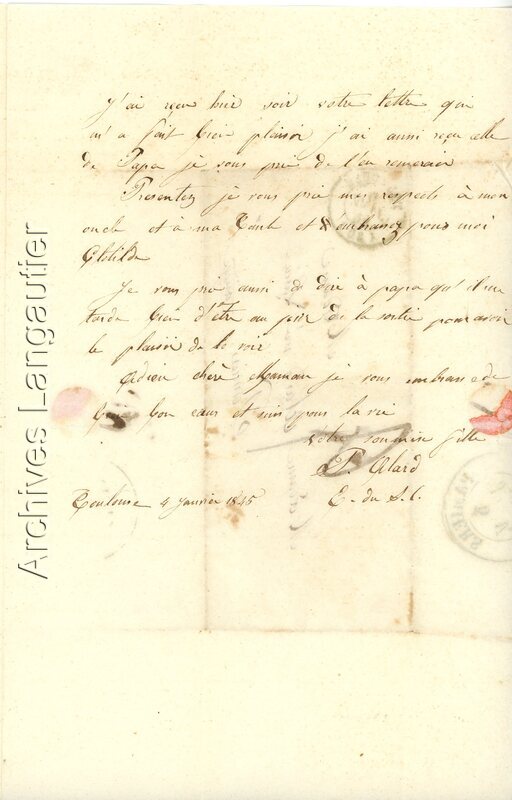 J'ai reçu hier soir votre lettre qui
m'a fait bien plaisir j'ai aussi reçu celle
de Papa je vous prie de l'en remercier
Presentez je vous prie mes respects à mon
oncle et à ma Tante et embrassez pour moi
Clotilde
Je vous prie aussi de dire à papa qu'il me
tarde bien d'être au jour de la sortie pour avoir
le plaisir de le voir
Adieu chère Maman je vous embrasse de
bon cœur et suis pour la vie
Votre soumise fille
P. Alard
E. du S. C.
Toulouse 4 Janvier 1845
Archives Langautier